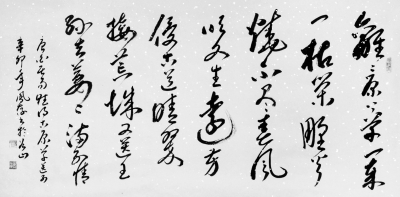 離〻原上草一歲
一枯榮野火
燒不盡春風
吹又生遠芳
侵古道晴翠
接荒城又送王
孫去萋〻滿別情
唐白居易賦得古原草送別
辛卯年